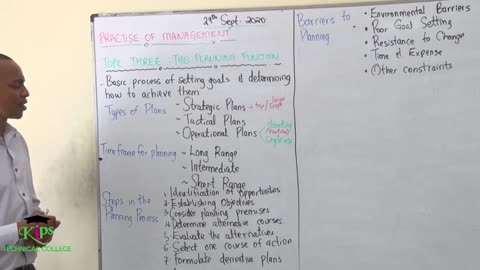 29th Sept. 2020
PRACTISE OF MANAGEMENT
TOPIC THREE: THE PLANNING FUNCTION
- Basic process of setting goals & determining
how to achieve them
Types of Plans
~ Strategic Plans
~ Tactical Plans
~ Operational Plans
standing
(routine)
single use
Timeframe for planning
~ Long Range
~ Intermediate
~ Short Range
Steps in the
Planning Process
1. Identification of opportunites
2. Establishing Objectives
3. Consider planning premises
4. Determine alternative courses
5. Evaluate the alternatives
6. Select one course of action
7. Formulate derivative plans
Barriers to
Planning
• Environmental Barriers
• Poor Goal Setting
• Resistance to Change
• Time & Expense
• Other constraints
KIPS
TECHNICAL COLLEGE